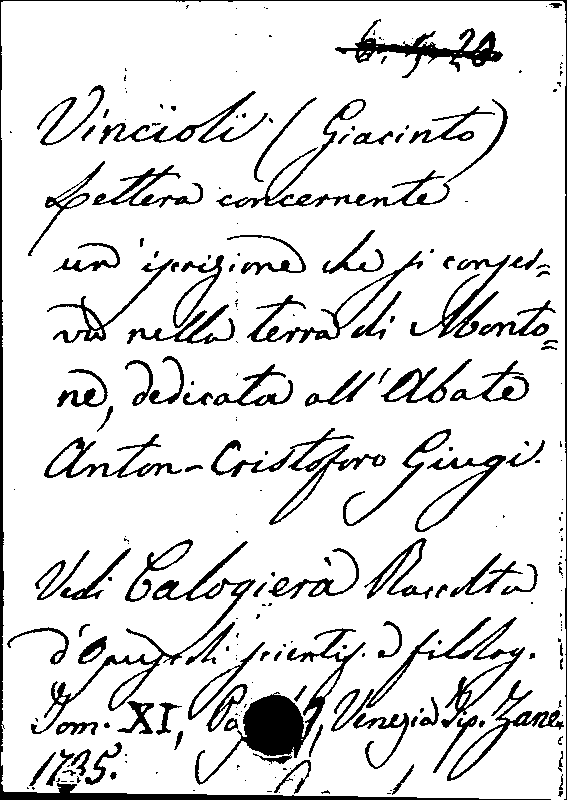 6. 5. 20
Vincioli (Giacinto)
Lettera concernente
un'iscrizione che si conser=
va nella terra di Monto=
ne, dedicata all'Abate
Anton-Cristoforo Giugi.
Vedi Calogierà Raccolta
d'Opuscoli scientif. e filolog.
Tom. XI, Venezia Tip. Zane
1735.